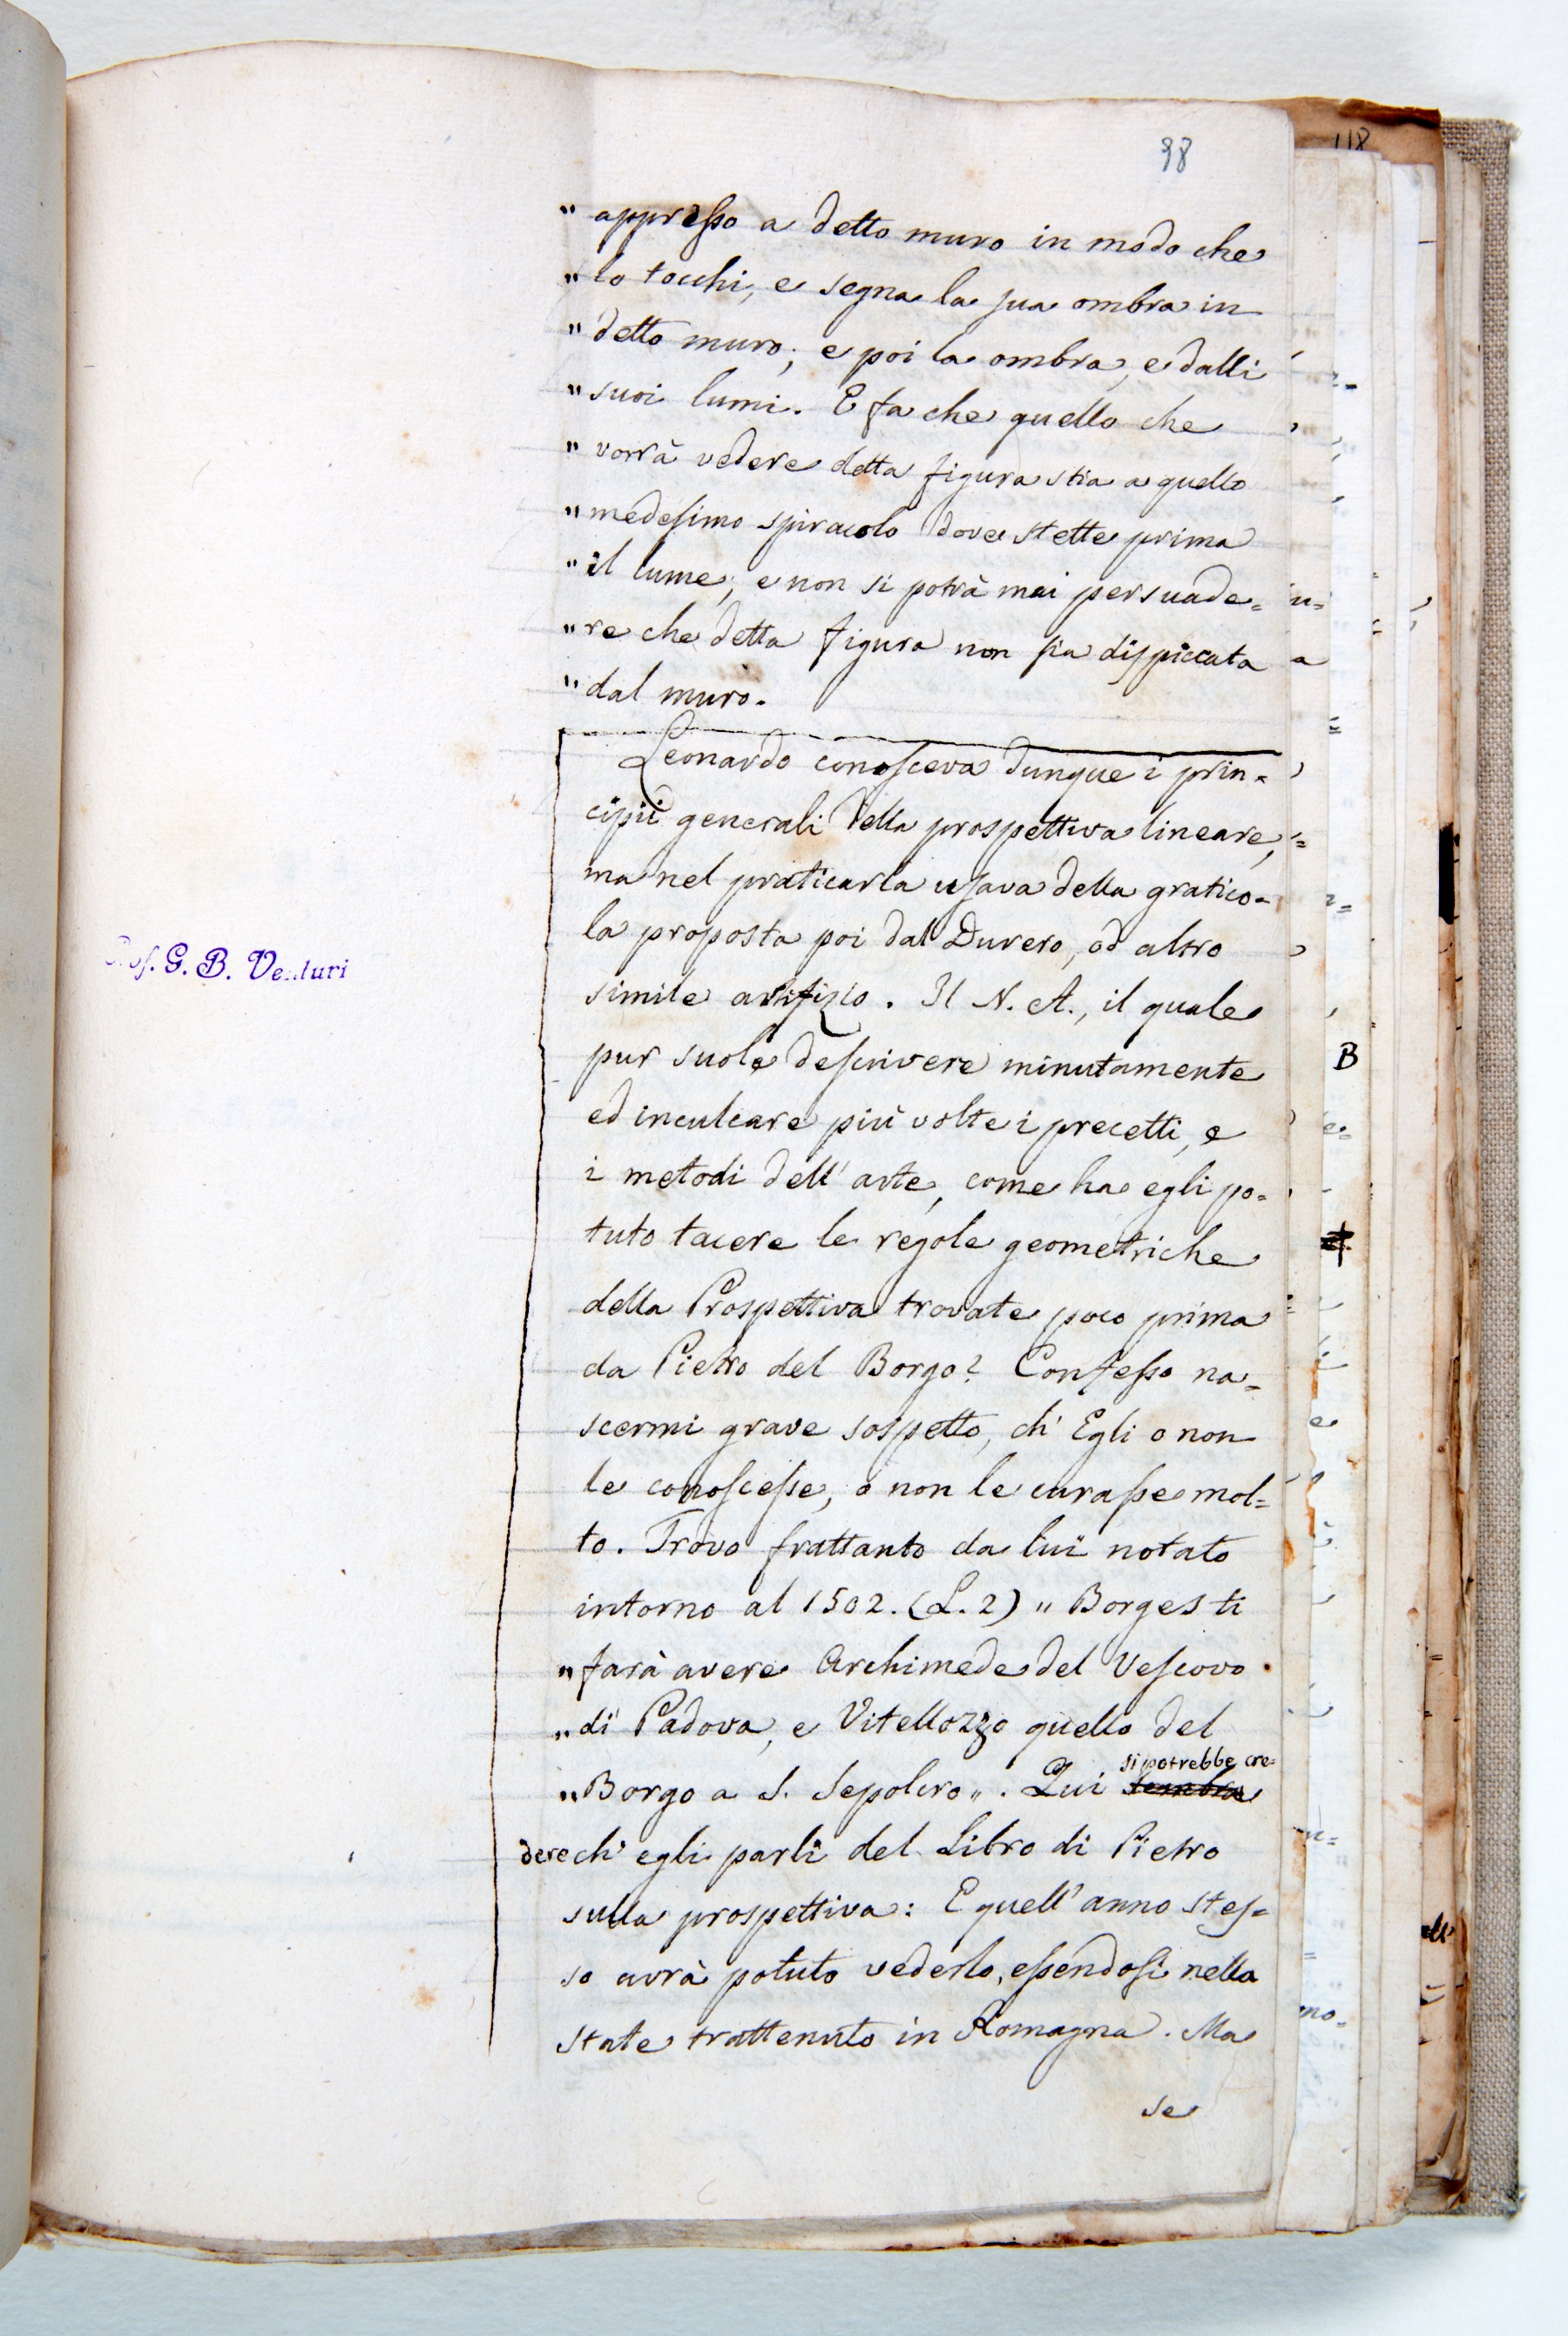 98
118
" appresso a detto muro in modo che
" lo tocchi, e segna la sua ombra in
" detto muro; e poi la ombra, e dalli
" suoi lumi. E fa che quello che
" vorrà vedere detta figura stia a quello
" medesimo spiracolo dove stette prima
" il lume, e non si potrà mai persuade=
" re che detta figura non sia dispiccata
" dal muro.
Leonardo conosceva dunque i prin=
cipii generali della prospettiva lineare,
ma nel praticarla usava della gratico=
la proposta poi dal Durero, od altro
simile artifizio. Il N. A., il quale
pur suole descrivere minutamente
ed inculcare più volte i precetti, e
i metodi dell' arte, come ha egli po=
tuto tacere le regole geometriche
della Prospettiva trovate poco prima
da Pietro del Borgo? Confesso na=
scermi grave sospetto, ch' Egli o non
le conoscesse, o non le curasse mol=
to. Trovo frattanto da lui notato
intorno al 1502. (L. 2) " Borges ti
" farà avere Archimede del Vescovo
" di Padova, e Vitellozzo quello del
" Borgo a S. Sepolcro ". Qui sembra si potrebbe cre=
dere ch' egli parli del Libro di Pietro
sulla prospettiva: E quell' anno stes=
so avrà potuto vederlo, essendosi nella
state trattenuto in Romagna. Ma
se
Prof. G. B. Venturi
B